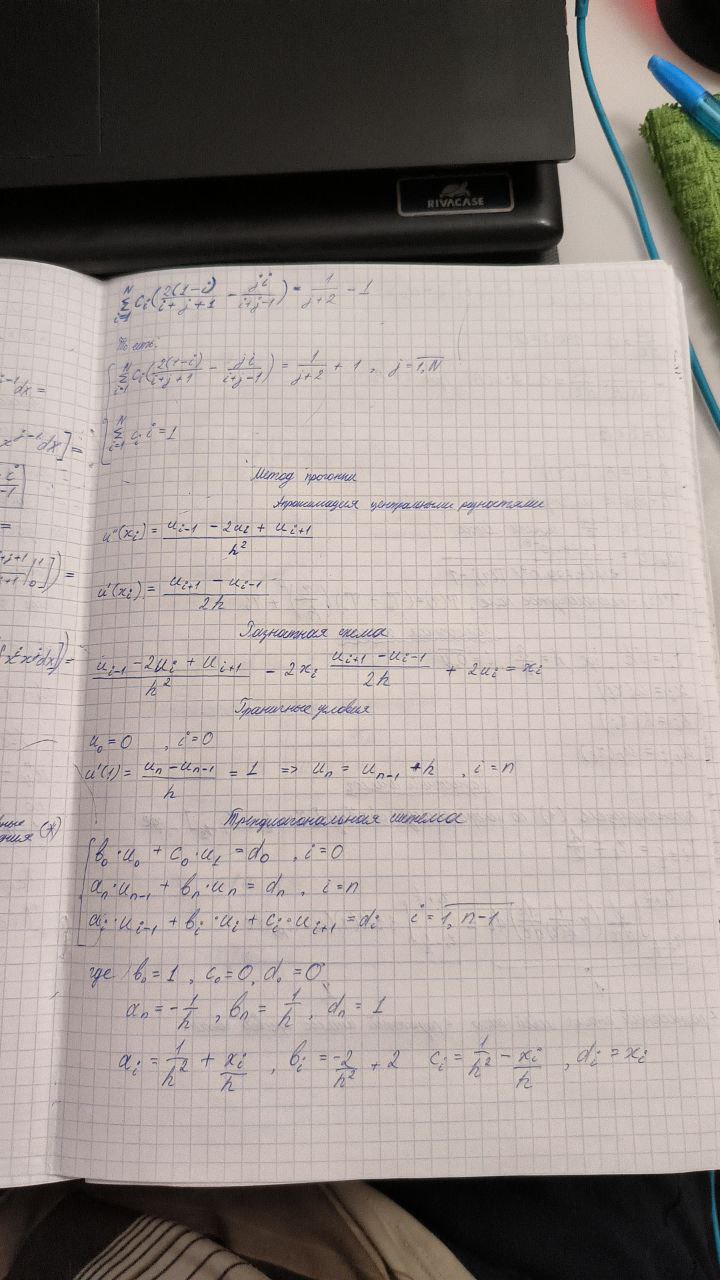 RIVACASE
N
Σ cᵢ(2(1-i)/(i+j+1) - ji/(i+j-1)) = 1/(j+2) - 1
i=1
То есть:
{ Σ_{i=1}^{N} cᵢ(2(1-i)/(i+j+1) - ji/(i+j-1)) = 1/(j+2) + 1, j=1,N
Σ_{i=1}^{N} cᵢ i = 1
Метод прогонки
Апроксимация центральными разностями
u''(xᵢ) = (uᵢ₋₁ - 2uᵢ + uᵢ₊₁)/h²
u'(xᵢ) = (uᵢ₊₁ - uᵢ₋₁)/2h
Разностная схема
(uᵢ₋₁ - 2uᵢ + uᵢ₊₁)/h² - 2xᵢ (uᵢ₊₁ - uᵢ₋₁)/2h + 2uᵢ = xᵢ
Граничные условия
u₀ = 0 , i=0
u'(1) = (uₙ - uₙ₋₁)/h = 1 => uₙ = uₙ₋₁ + h , i=n
Трехдиагональная система
{ b₀·u₀ + c₀·u₁ = d₀ , i=0
aₙ·uₙ₋₁ + bₙ·uₙ = dₙ , i=n
aᵢ·uᵢ₋₁ + bᵢ·uᵢ + cᵢ·uᵢ₊₁ = dᵢ i = 1, n-1
где b₀=1 , c₀=0, d₀=0
aₙ = -1/h , bₙ = 1/h , dₙ = 1
aᵢ = 1/h² + xᵢ/h , bᵢ = -2/h² + 2 cᵢ = 1/h² - xᵢ/h , dᵢ = xᵢ